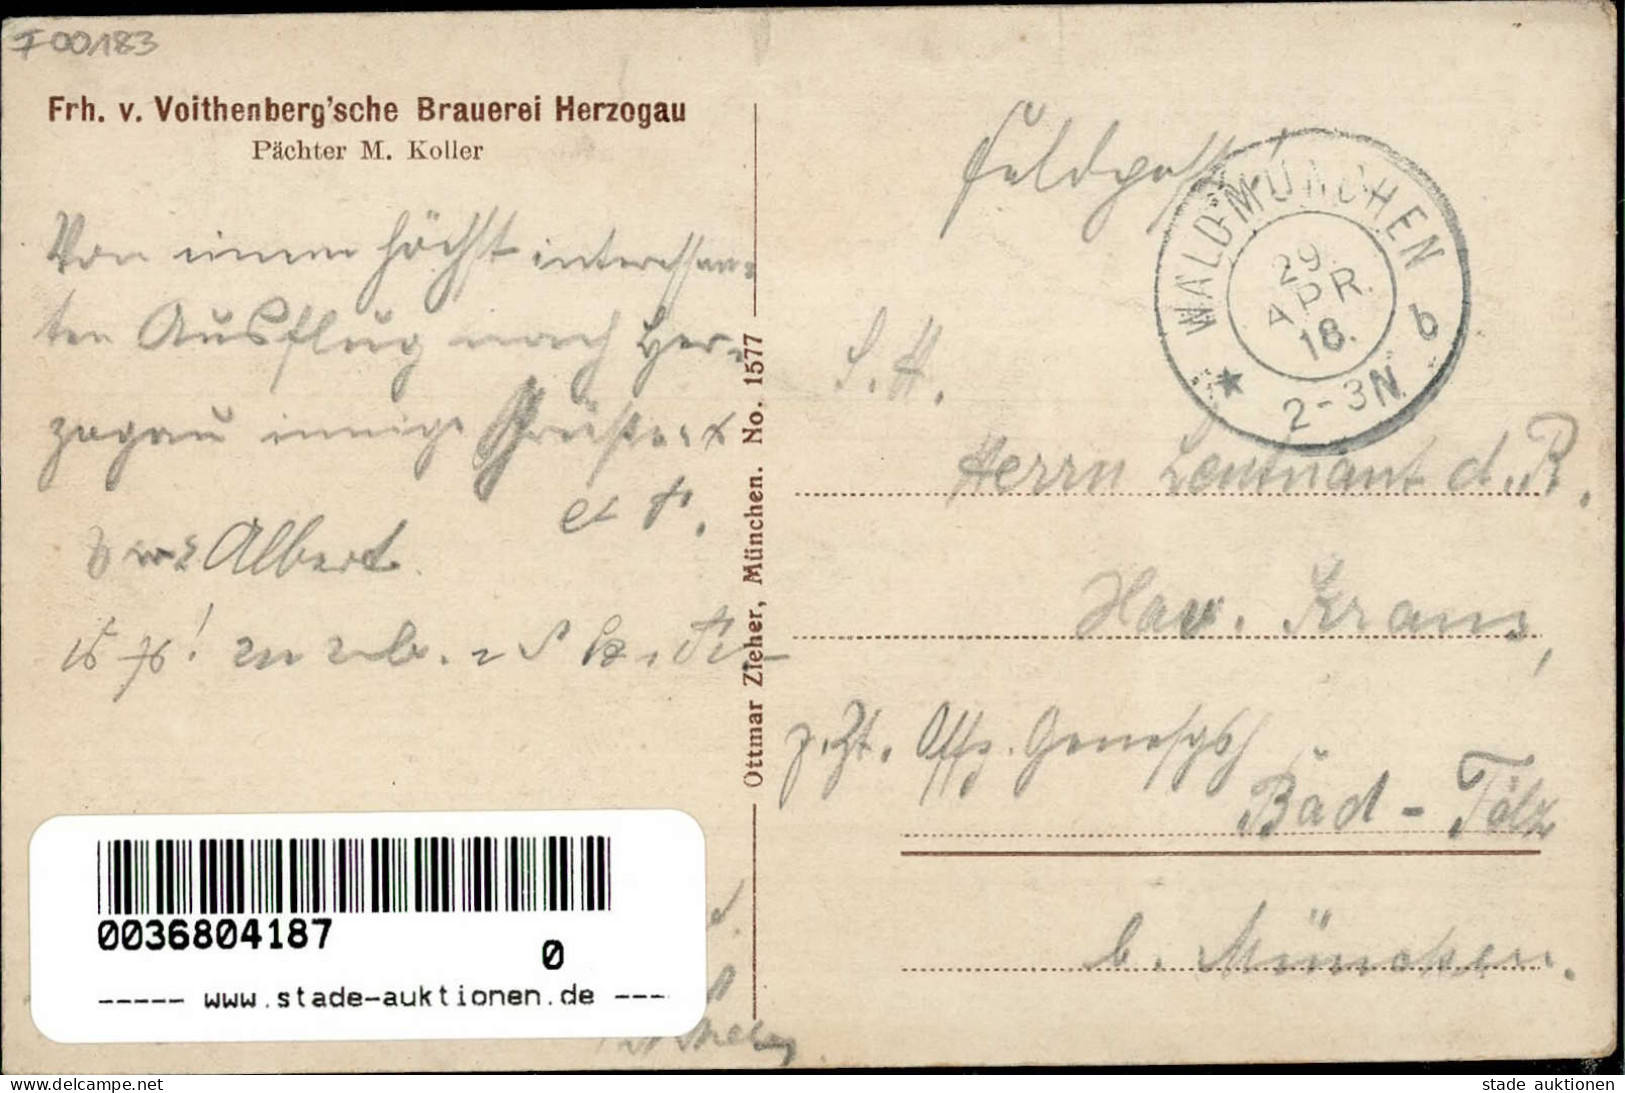 F00183
Frh. v. Voithenberg'sche Brauerei Herzogau
Pächter M. Koller
Von einem höchst interessan-
ten Ausflug nach Her-
zogau innige Grüße
Albert.
Ottmar Zieher, München. No. 1577
Feldpost
WALDMÜNCHEN b
29.
APR.
18.
2-3N.
S. H.
Herrn Leutnant d. R.
Kraus,
z. Zt. Offz. Genesgsh
Bad-Tölz
b. München.
0036804187
0
----- www.stade-auktionen.de ---
delcampe.net
stade auktionen